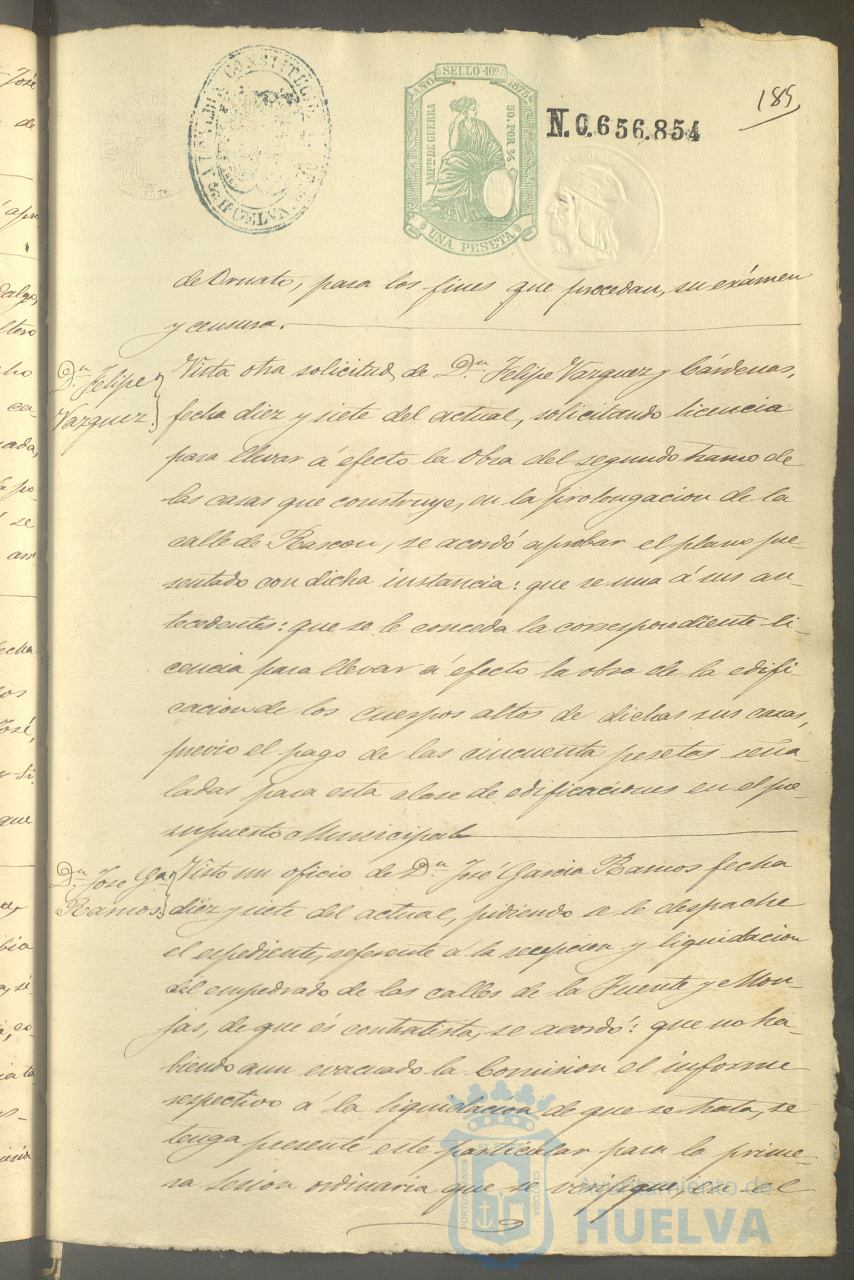 ALCALDIA CONSTITUCIONAL DE HUELVA
AÑO SELLO 10º 1875
IMPtO DE GUERRA
50. POR %
UNA PESETA
N.0.656.854
185
de Ornato, para los fines que procedan, su exámen
y censura.
Dn Felipe
Vazquez.
Vista otra solicitud de Dn Felipe Vazquez y Cárdenas,
fecha diez y siete del actual, solicitando licencia
para llevar á efecto la obra del segundo tramo de
las casas que construye, en la prolongacion de la
calle de Rascon, se acordó aprobar el plano pre-
sentado con dicha instancia: que se una á sus an-
tecedentes: que se le conceda la correspondiente li-
cencia para llevar á efecto la obra de la edifi-
cacion de los cuerpos altos de dichas sus casas,
previo el pago de las cincuenta pesetas seña-
ladas para esta clase de edificaciones en el pre-
supuesto Municipal
Dn Jose Ga
Ramos.
Visto un oficio de Dn José Garcia Ramos fecha
diez y siete del actual, pidiendo se le despache
el espediente, referente á la recepcion y liquidacion
del empedrado de las calles de la Fuente y Mon-
jas, de que és contratista, se acordó: que no ha-
biendo aun evacuado la Comision el informe
respectivo á la liquidación de que se trata, se
tenga presente este particular para la prime-
ra sesion ordinaria que se verifique en el
Ayuntamiento de
HUELVA